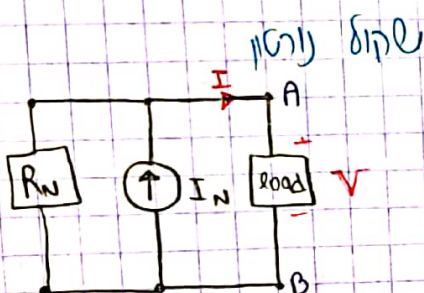 שקול נורטון
I
A
+
R_N
I_N
load
V
-
B